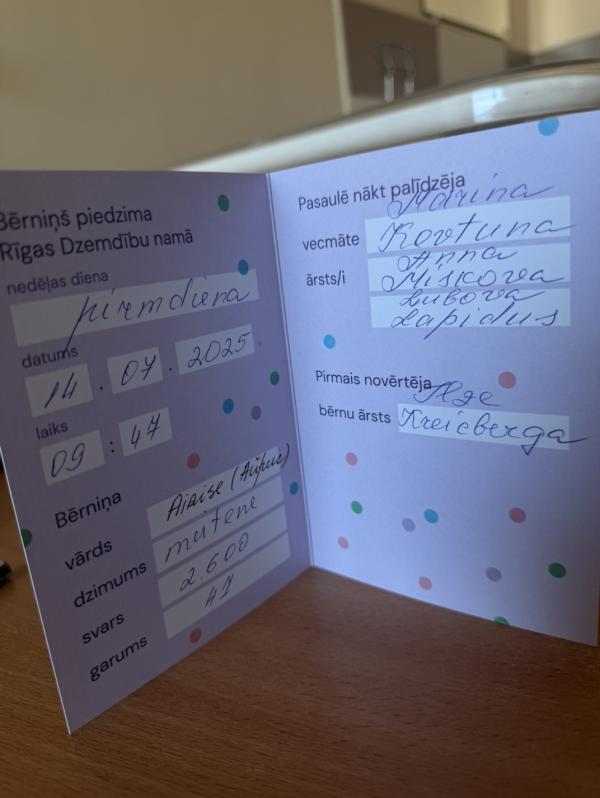 Bērniņš piedzima
Rīgas Dzemdību namā
nedēļas diena
pirmdiena
datums
14 . 07 . 2025.
laiks
09 : 47
Bērniņa
vārds
dzimums meitene
svars 2.600
garums 47
Pasaulē nākt palīdzēja
Marina
vecmāte Kovtuna
Anna
ārsts/i Miskova
Ļubova
Lapidus
Pirmais novērtēja
Ilze
bērnu ārsts Kreicberga